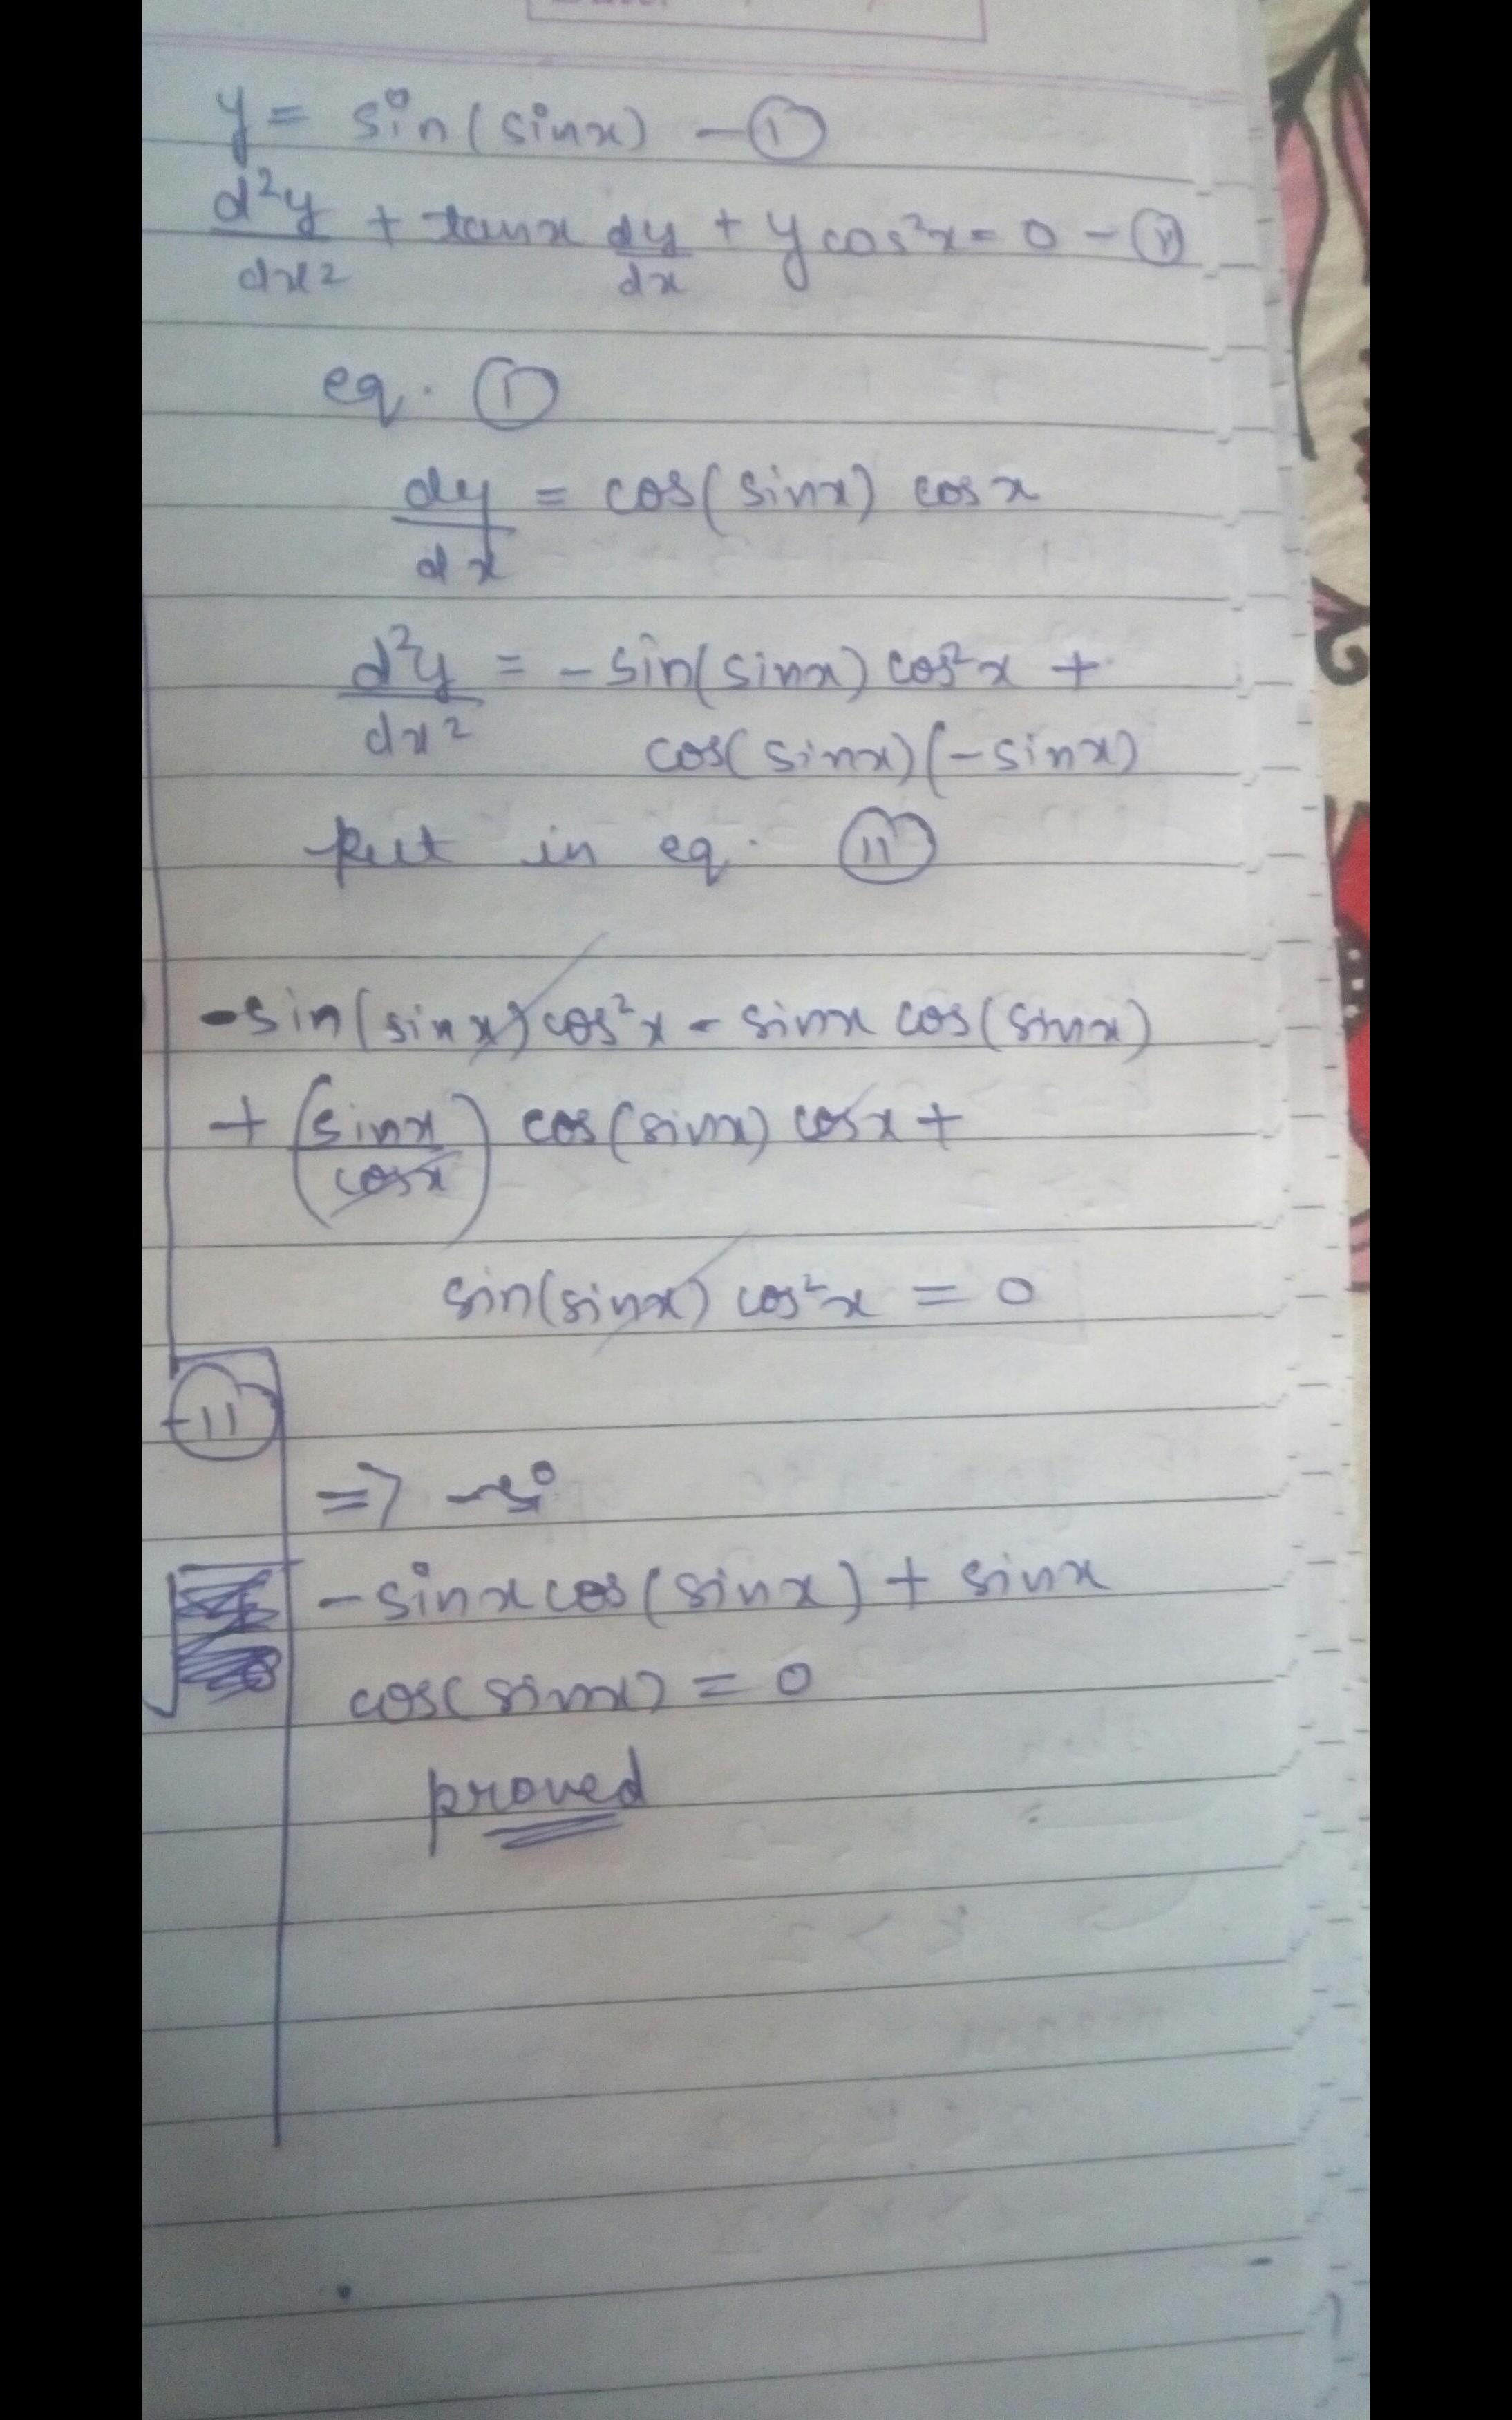 y = sin(sinx) - ①
d²y/dx² + tanx dy/dx + y cos²x = 0 - ⑪
eq. ①
dy/dx = cos(sinx) cosx
d²y/dx² = - sin(sinx) cos²x +
cos(sinx)(-sinx)
put in eq. ⑪
-sin(sinx)cos²x - sinx cos(sinx)
+ (sinx/cosx) cos(sinx) cosx +
sin(sinx) cos²x = 0
⑪
=> -si
-sinxcos(sinx) + sinx
cos(sinx) = 0
proved